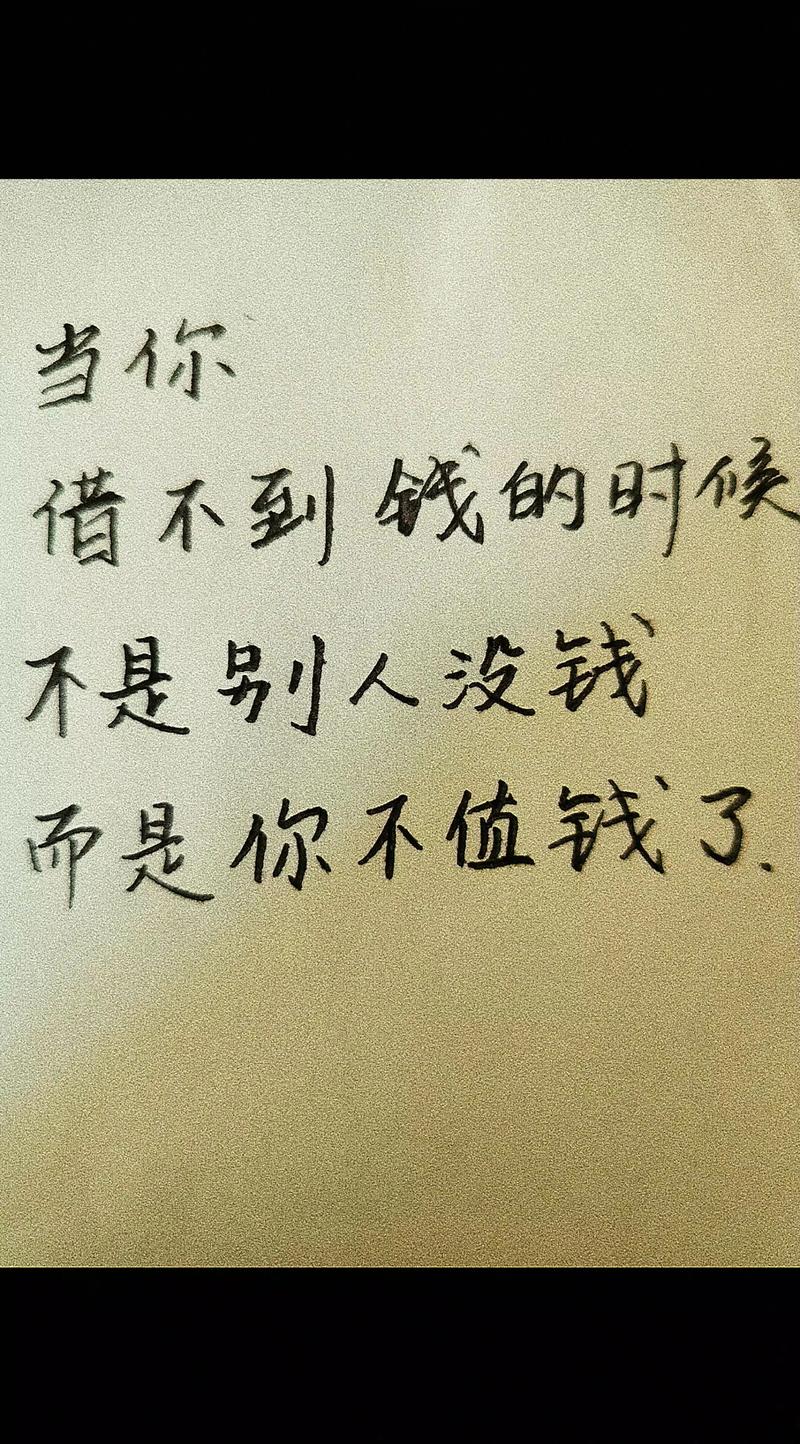 当你
借不到钱的时候
不是别人没钱
而是你不值钱了.